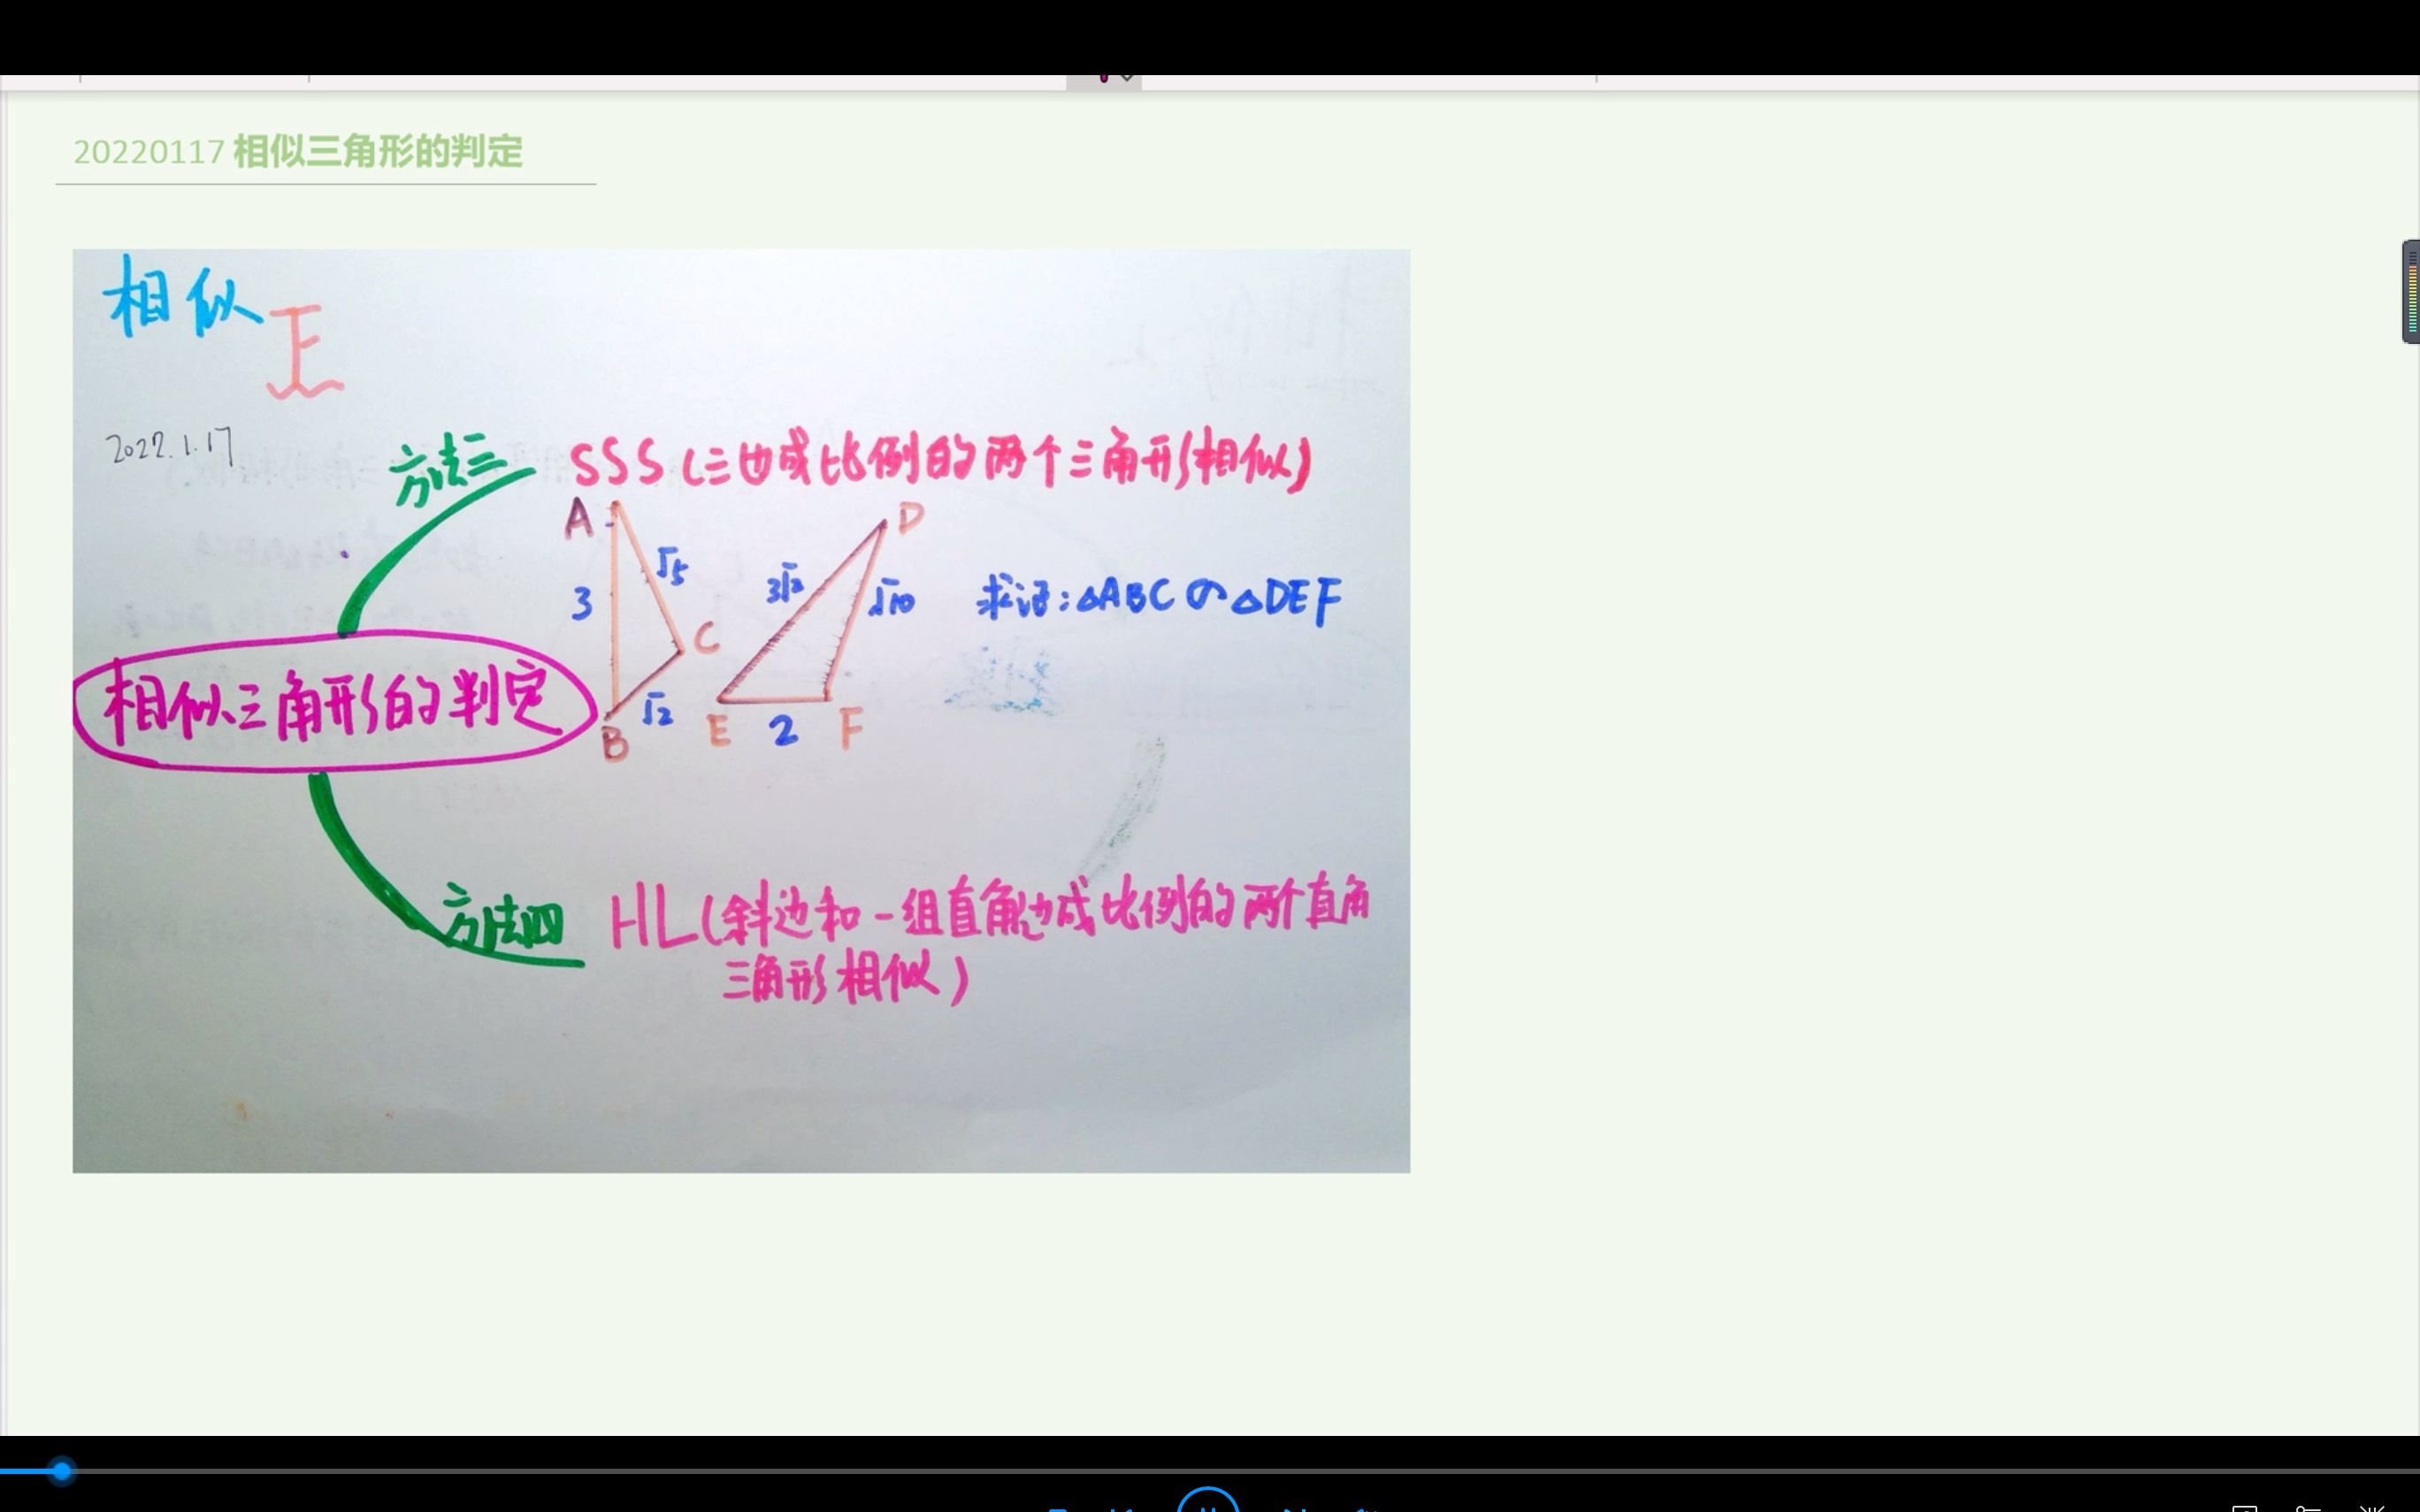 20220117 相似三角形的判定
相似
2022.1.17
方法三
SSS(三边成比例的两个三角形相似)
A
D
3
√5
3√2
√10
求证:△ABC∽△DEF
C
相似三角形的判定
√2
B
E
2
F
方法四
HL(斜边和一组直角边成比例的两个直角
三角形相似)